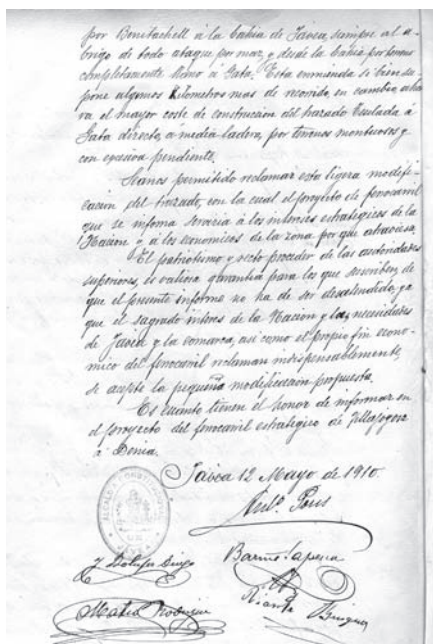 por Benitachell á la bahia de Jávea, siempre al a-
brigo de todo ataque por mar, y desde la bahia por terreno
completamente llano á Gata. Esta enmienda si bien su-
pone algunos kilometros mas de recorrido, en cambio aho-
rra el mayor coste de construccion del trazado Teulada á
Gata directo, á media ladera, por terrenos montuosos y
con excesiva pendiente.
Séanos permitido reclamar esta ligera modifi-
cacion del trazado, con la cual el proyecto de ferrocarril
que se informa serviria á los intereses estratégicos de la
Nacion y a los economicos de la zona por que atraviesa.
El patriotismo y recto proceder de las autoridades
superiores, es valiosa garantia para los que suscriben, de
que el presente informe no ha de ser desatendido, ya
que el sagrado interes de la Nacion y las necesidades
de Javea y la comarca, asi como el propio fin econo-
mico del ferrocarril reclaman indispensablemente,
se acepte la pequeña modificacion propuesta.
Es cuanto tienen el honor de informar en
el proyecto del ferrocarril estratégico de Villajoyosa
á Denia.
Javea 12 Mayo de 1910.
Pons
ALCALDIA CONSTITUCIONAL